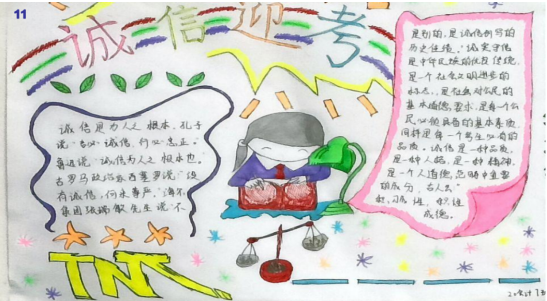 11
诚信迎考
诚信是为人之根本。孔子
说:言必诚信,行必忠正。
鲁迅说:诚信为人之根本也。
古罗马政治家西塞罗说:没
有诚信,何来尊严。海尔
集团张瑞敏先生说:不
是别的,是诚信创写的
历史佳绩。诚实守信
是中华民族的优良传统,
是一个社会文明进步的
标志,是社会对公民的
基本道德要求,是每一个公
民必须具备的基本素质
同样是每一个考生必有的
品质。诚信是一种品质,
是一种人格,是一种精神,
是一个人道德范畴中重要
组成分,古人云:
成德。
TNT